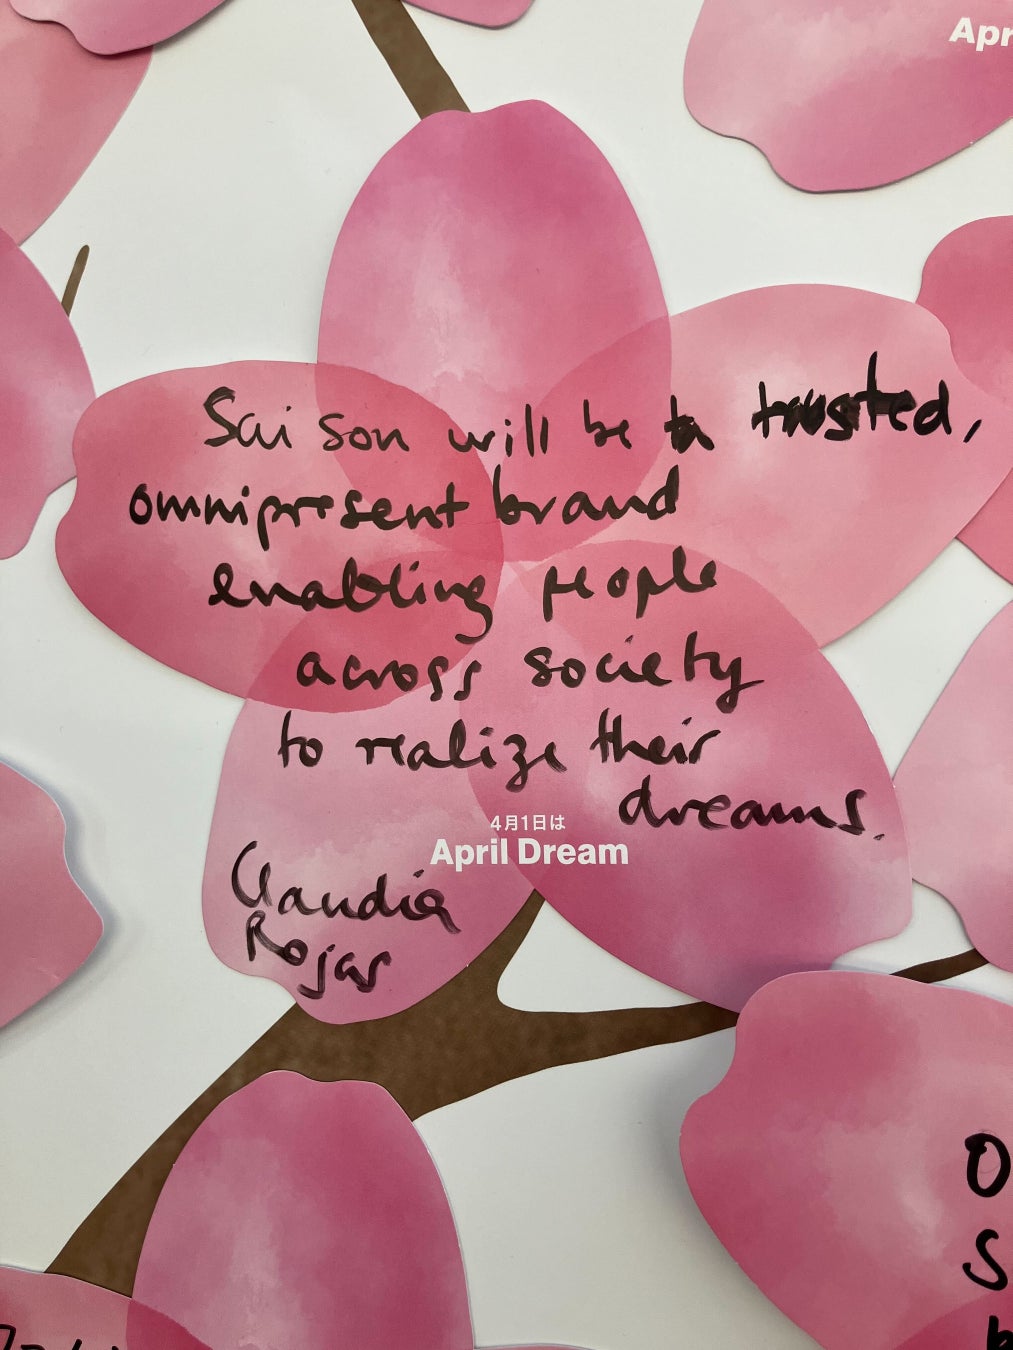 Apr
Saison will be a trusted,
omnipresent brand
enabling people
across society
to realize their
dreams.
4月1日は
April Dream
Claudia
Rojas
O
S